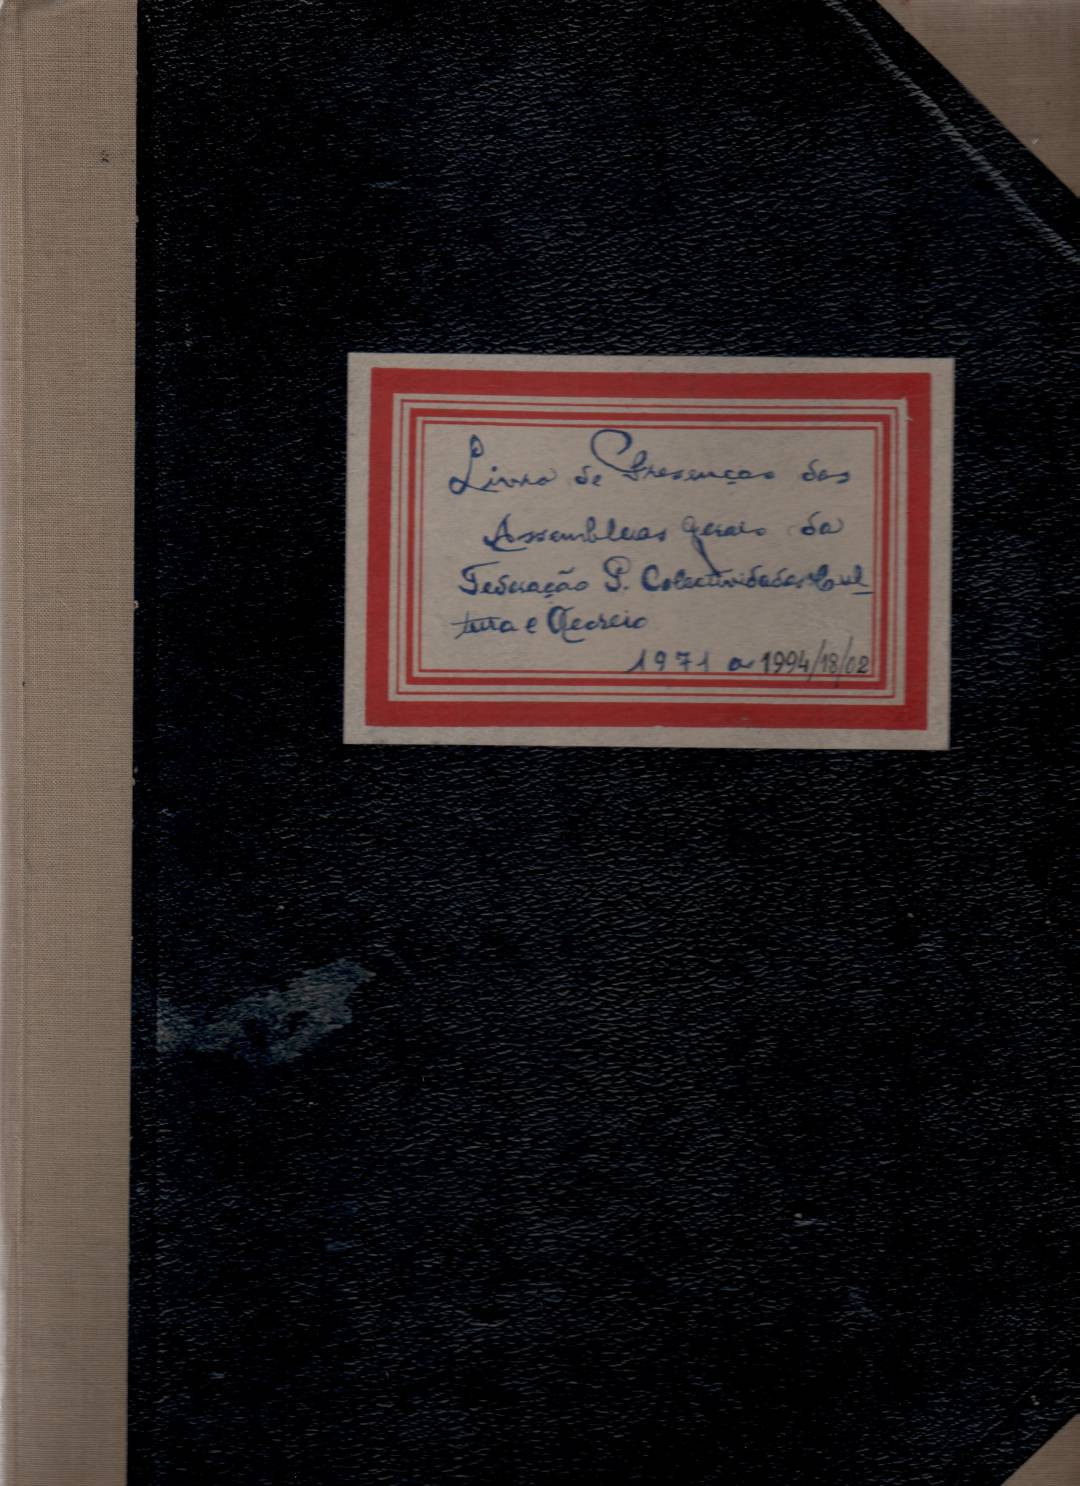 Livro de Presenças das
Assembleias gerais da
Federação P. Colectividades Cul
tura e Recreio
1971 a 1994/18/02